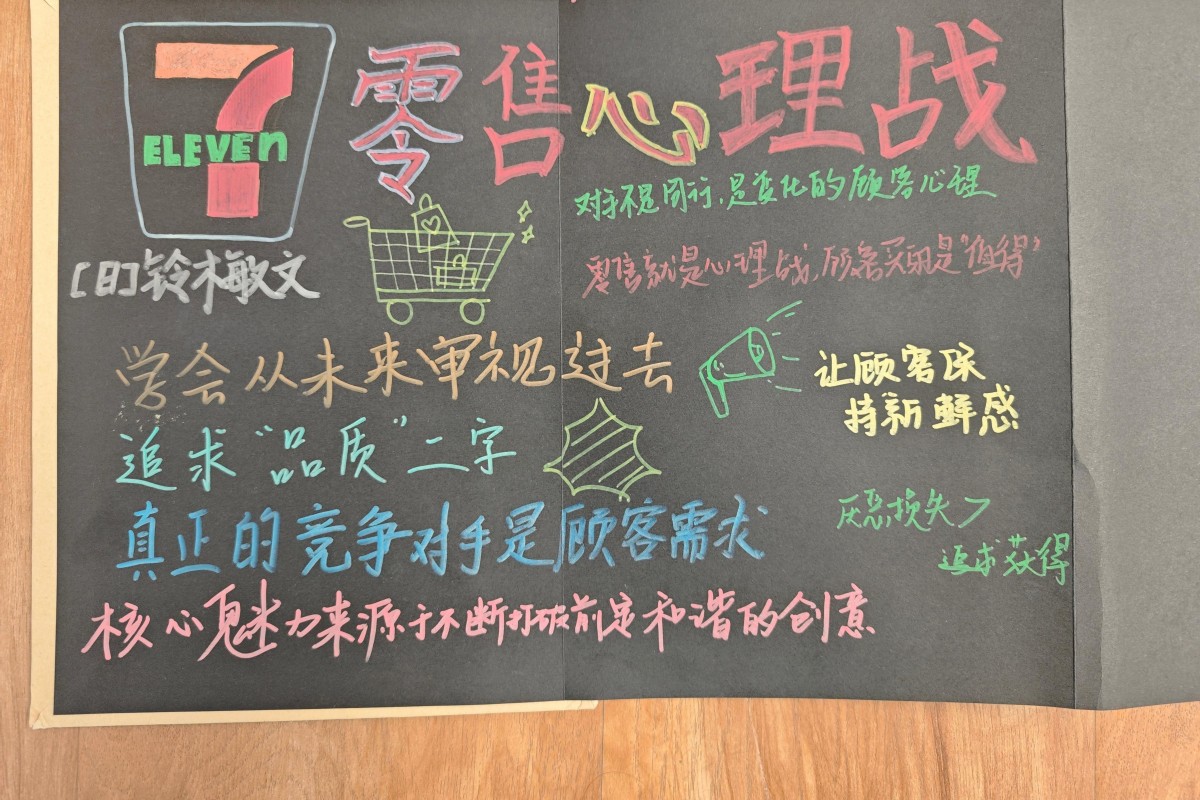 7
ELEVEn
零售心理战
对手不是同行，是变化的顾客心理
[日]铃木敏文
零售就是心理战，顾客买的是“值得”
学会从未来审视过去
让顾客保
持新鲜感
追求“品质”二字
真正的竞争对手是顾客需求
厌恶损失>
追求获得
核心魅力来源于不断打破前定和谐的创意